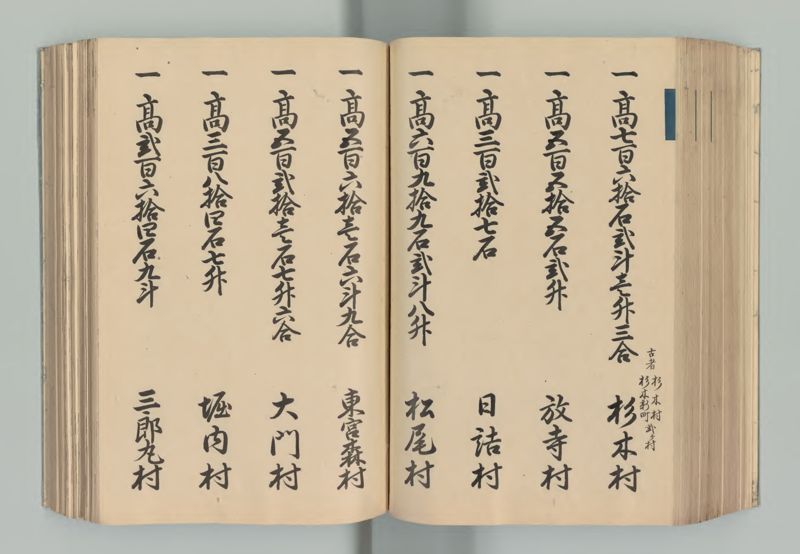 一 高七百六拾石弐斗壱升三合
古者 杉木村
杉木新町 弐ヶ村
杉木村
一 高五百五拾五石弐升
放寺村
一 高三百弐拾七石
日詰村
一 高六百九拾九石弐斗八升
松尾村
一 高五百六拾壱石六斗九合
東宮森村
一 高五百弐拾壱石七升六合
大門村
一 高三百八拾四石七升
堀内村
一 高弐百六拾四石九斗
三郎丸村